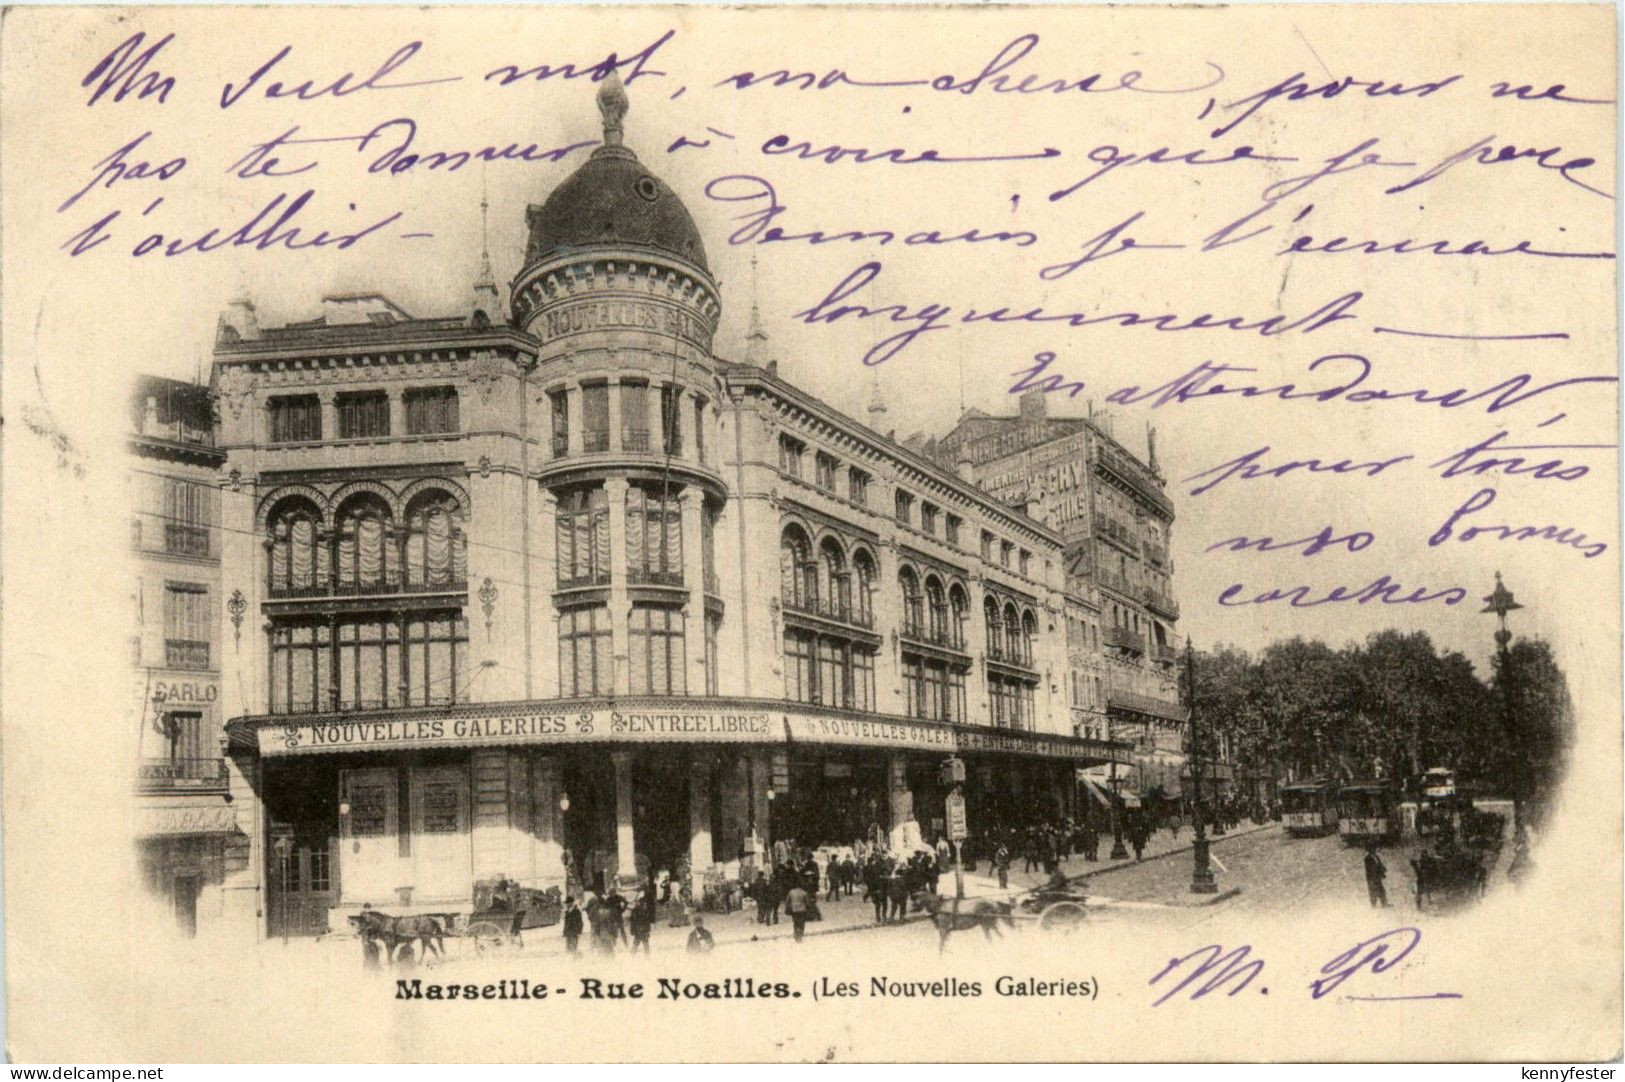 Un seul mot, ma cherie, pour ne
pas te donner à croire que je pere
t'outlier - Demain je t'écrirai
longuement —
En attendant,
pour tous
nos bonnes
caresses
NOUVELLES GALERIES
NOUVELLES GALERIES ENTREE LIBRE NOUVELLES GALERIES ENTREE LIBRE
CARLO
M. P.
Marseille - Rue Noailles. (Les Nouvelles Galeries)
delcampe.net
kennyfester